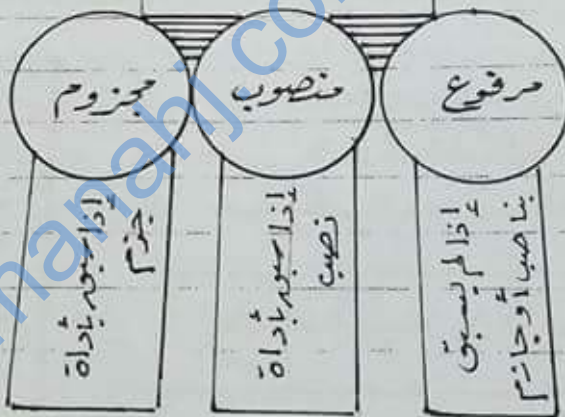 مرفوع
منصوب
مجزوم
إذا لم يسبق
بناصب أو جازم
إذا سبق بأداة
نصب
إذا سبق بأداة
جزم
manahj.co